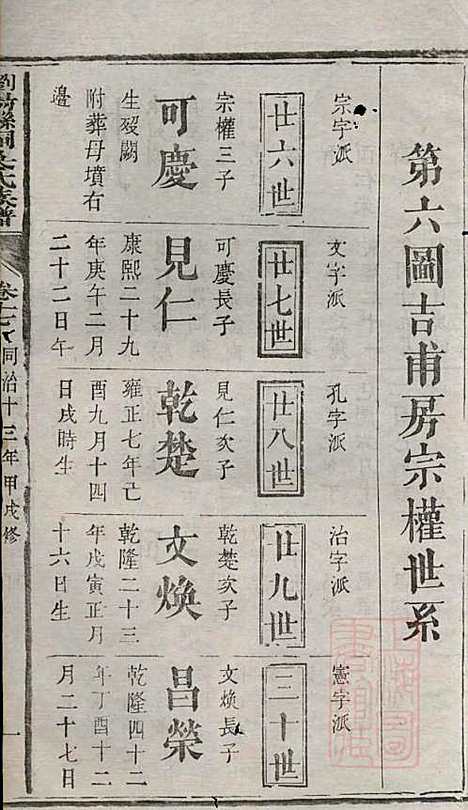 第六圖吉甫房宗權世系
宗字派
廿六世
宗權三子
可慶
生歿闕
附葬母墳右
邊
文字派
廿七世
可慶長子
見仁
康熙二十九
年庚午二月
二十二日午
孔字派
廿八世
見仁次子
乾楚
雍正七年己
酉九月十四
日戌時生
治字派
廿九世
乾楚次子
文煥
乾隆二十三
年戊寅正月
十六日生
憲字派
三十世
文煥長子
昌榮
乾隆四十二
年丁酉十二
月二十七日
氏族譜
卷十七
同治十三年甲戌修
一